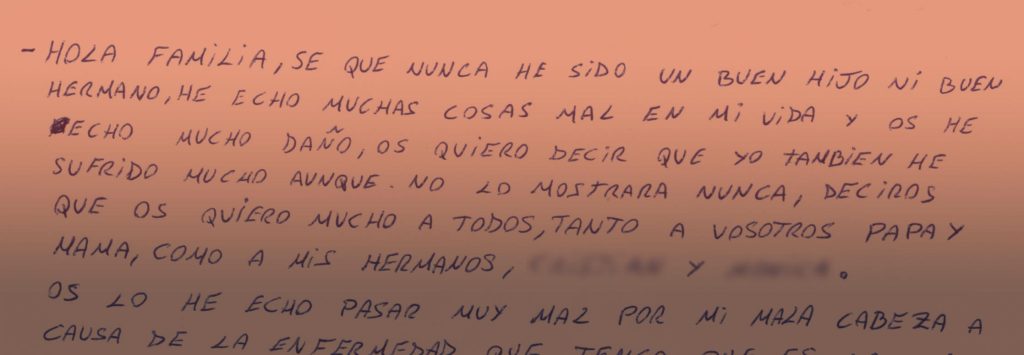 - HOLA FAMILIA, SE QUE NUNCA HE SIDO UN BUEN HIJO NI BUEN
HERMANO, HE ECHO MUCHAS COSAS MAL EN MI VIDA Y OS HE
ECHO MUCHO DAÑO, OS QUIERO DECIR QUE YO TAMBIEN HE
SUFRIDO MUCHO AUNQUE. NO LO MOSTRARA NUNCA, DECIROS
QUE OS QUIERO MUCHO A TODOS, TANTO A VOSOTROS PAPA Y
MAMA, COMO A MIS HERMANOS, Y .
OS LO HE ECHO PASAR MUY MAL POR MI MALA CABEZA A
CAUSA DE LA ENFERMEDAD QUE TENGO QUE ES